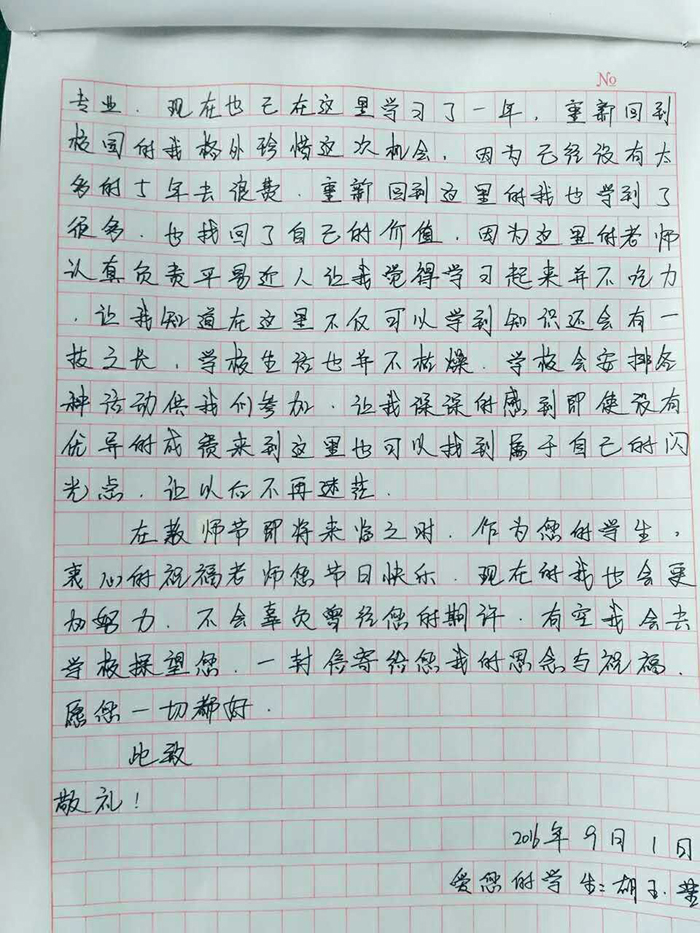 No
专业.现在也已在这里学习了一年,重新回到
校园的我格外珍惜这次机会.因为已经没有太
多的丁年去浪费.重新回到这里的我也学到了
很多.也找回了自己的价值.因为这里的老师
认真负责平易近人让我觉得学习起来并不吃力
.让我知道在这里不仅可以学到知识还会有一
技之长.学校生活也并不枯燥.学校会安排各
种活动供我们参加.让我深深的感到即使没有
优异的成绩来到这里也可以找到属于自己的闪
光点.让以后不再迷茫.
在教师节即将来临之时.作为您的学生,
衷心的祝福老师您节日快乐.现在的我也会更
加努力.不会辜负曾经您的期许.有空我会去
学校探望您.一封信寄给您我的思念与祝福.
愿您一切都好.
此致
敬礼!
2016年9月1日
爱您的学生:胡玉莹